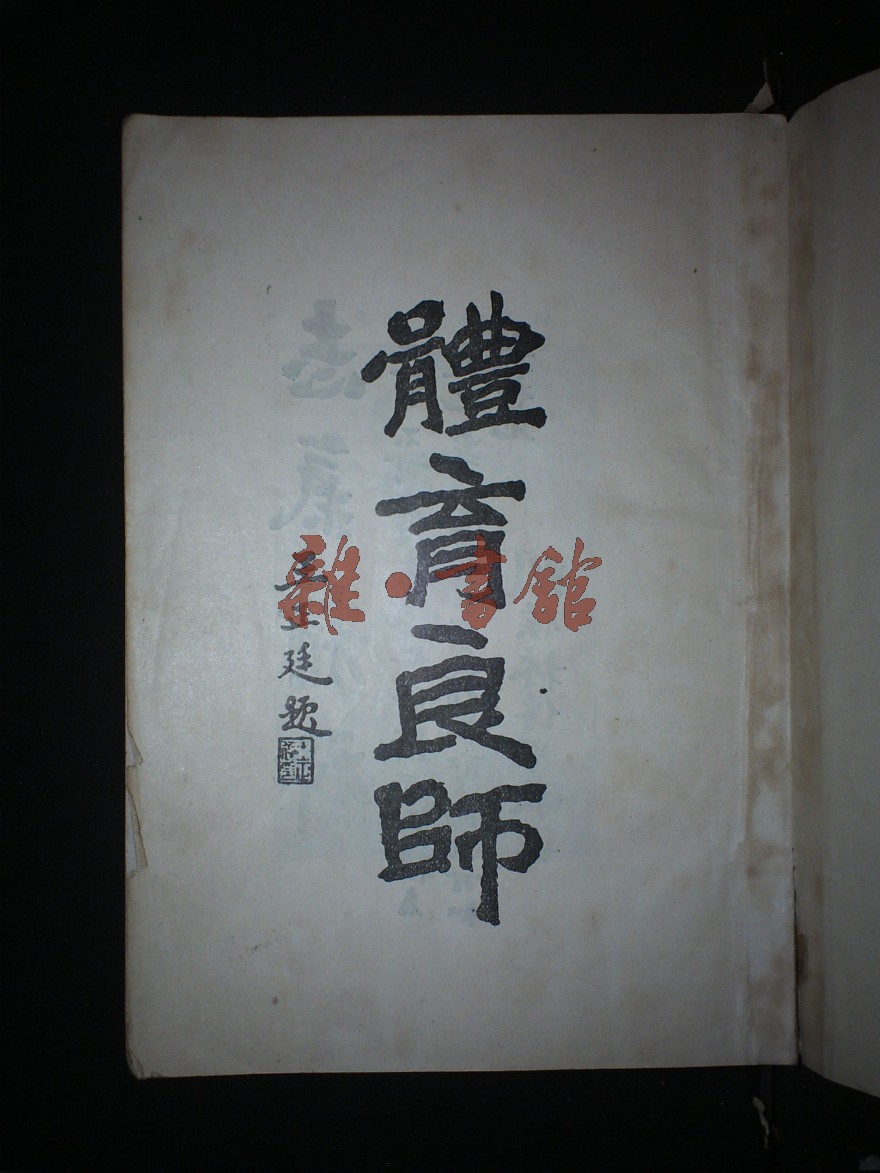 體育良師
王正廷題
雜·書館